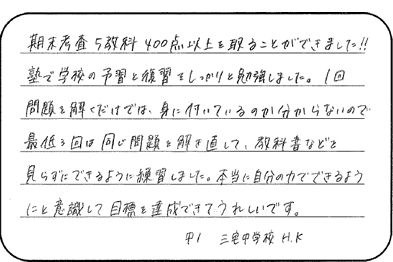 期末考査5教科400点以上を取ることができました!!
塾で学校の予習と復習をしっかりと勉強しました。1回
問題を解くだけでは、身に付いているのか分からないので
最低3回は同じ問題を解き直して、教科書などを
見らずにできるように練習しました。本当に自分の力でできるよう
にと意識して目標を達成できてうれしいです。
中1 三宅中学校 H.K